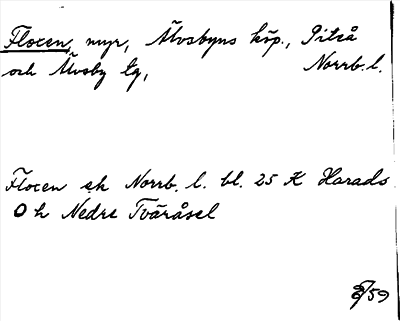 Flocen, myr, Älvsbyns köp., Piteå
och Älvsby tg, Norrb. l.
Flocen sk Norrb. l. bl. 25 K Harads
O h Nedre Tväråsel
/59